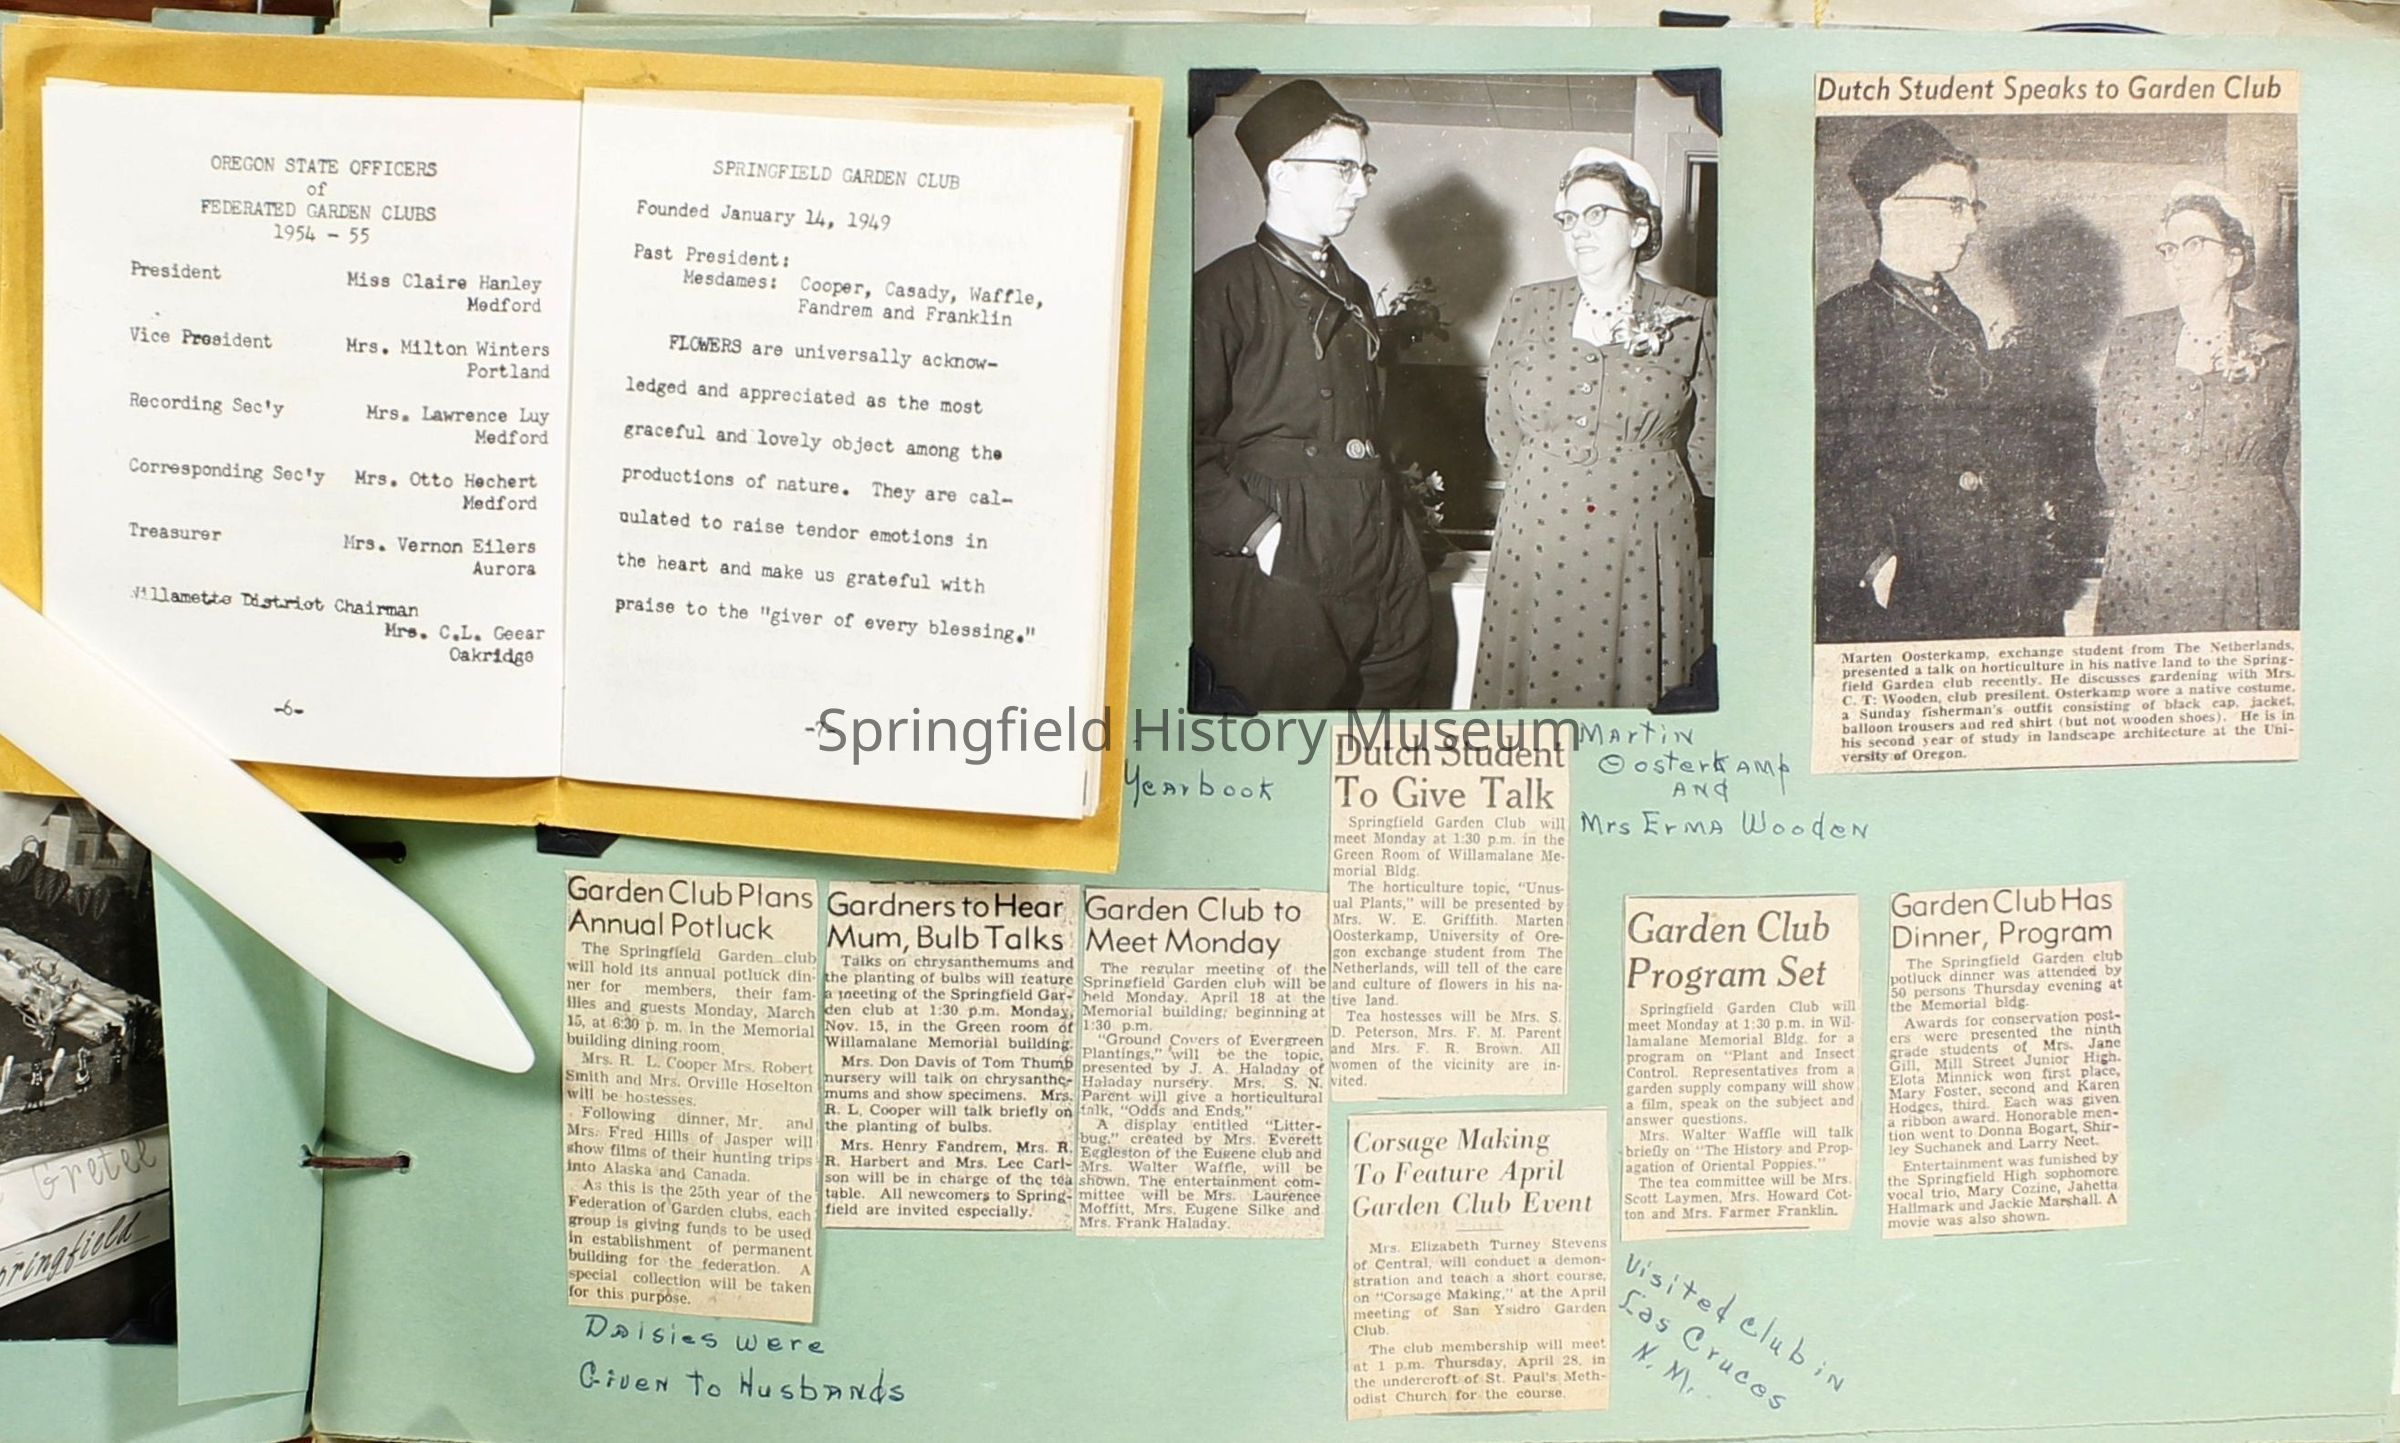 OREGON STATE OFFICERS
of
FEDERATED GARDEN CLUBS
1954 - 55
President Miss Claire Hanley
Medford
Vice President Mrs. Milton Winters
Portland
Recording Sec'y Mrs. Lawrence Luy
Medford
Corresponding Sec'y Mrs. Otto Hechert
Medford
Treasurer Mrs. Vernon Eilers
Aurora
Willamette District Chairman
Mrs. C.L. Geear
Oakridge
-6-
SPRINGFIELD GARDEN CLUB
Founded January 14, 1949
Past President:
Mesdames: Cooper, Casady, Waffle,
Fandrem and Franklin
FLOWERS are universally acknow-
ledged and appreciated as the most
graceful and lovely object among the
productions of nature. They are cal-
culated to raise tendor emotions in
the heart and make us grateful with
praise to the "giver of every blessing."
-7-
Springfield History Museum
Yearbook
Dutch Student Speaks to Garden Club
Marten Oosterkamp, exchange student from The Netherlands,
presented a talk on horticulture in his native land to the Spring-
field Garden club recently. He discusses gardening with Mrs.
C. T: Wooden, club presilent. Osterkamp wore a native costume,
a Sunday fisherman's outfit consisting of black cap, jacket,
balloon trousers and red shirt (but not wooden shoes). He is in
his second year of study in landscape architecture at the Uni-
versity of Oregon.
Martin
Oosterkamp
and
Mrs Erma Wooden
Dutch Student
To Give Talk
Springfield Garden Club will
meet Monday at 1:30 p.m. in the
Green Room of Willamalane Me-
morial Bldg.
The horticulture topic, "Unus-
ual Plants," will be presented by
Mrs. W. E. Griffith. Marten
Oosterkamp, University of Ore-
gon exchange student from The
Netherlands, will tell of the care
and culture of flowers in his na-
tive land.
Tea hostesses will be Mrs. S.
D. Peterson, Mrs. F. M. Parent
and Mrs. F. R. Brown. All
women of the vicinity are in-
vited.
Garden Club Plans
Annual Potluck
The Springfield Garden club
will hold its annual potluck din-
ner for members, their fam-
ilies and guests Monday, March
15, at 6:30 p. m. in the Memorial
building dining room.
Mrs. R. L. Cooper Mrs. Robert
Smith and Mrs. Orville Hoselton
will be hostesses.
Following dinner, Mr. and
Mrs. Fred Hills of Jasper will
show films of their hunting trips
into Alaska and Canada.
As this is the 25th year of the
Federation of Garden clubs, each
group is giving funds to be used
in establishment of permanent
building for the federation. A
special collection will be taken
for this purpose.
Daisies were
Given to Husbands
Gardners to Hear
Mum, Bulb Talks
Talks on chrysanthemums and
the planting of bulbs will feature
a meeting of the Springfield Gar-
den club at 1:30 p.m. Monday,
Nov. 15, in the Green room of
Willamalane Memorial building.
Mrs. Don Davis of Tom Thumb
nursery will talk on chrysanthe-
mums and show specimens. Mrs.
R. L. Cooper will talk briefly on
the planting of bulbs.
Mrs. Henry Fandrem, Mrs. R.
R. Harbert and Mrs. Lee Carl-
son will be in charge of the tea
table. All newcomers to Spring-
field are invited especially.
Garden Club to
Meet Monday
The regular meeting of the
Springfield Garden club will be
held Monday, April 18 at the
Memorial building; beginning at
1:30 p.m.
"Ground Covers of Evergreen
Plantings," will be the topic,
presented by J. A. Haladay of
Haladay nursery. Mrs. S. N.
Parent will give a horticultural
talk, "Odds and Ends."
A display entitled "Litter-
bug," created by Mrs. Everett
Eggleston of the Eugene club and
Mrs. Walter Waffle, will be
shown. The entertainment com-
mittee will be Mrs. Laurence
Moffitt, Mrs. Eugene Silke and
Mrs. Frank Haladay.
Corsage Making
To Feature April
Garden Club Event
Mrs. Elizabeth Turney Stevens
of Central, will conduct a demon-
stration and teach a short course,
on "Corsage Making," at the April
meeting of San Ysidro Garden
Club.
The club membership will meet
at 1 p.m. Thursday, April 28, in
the undercroft of St. Paul's Meth-
odist Church for the course.
Garden Club
Program Set
Springfield Garden Club will
meet Monday at 1:30 p.m. in Wil-
lamalane Memorial Bldg. for a
program on "Plant and Insect
Control. Representatives from a
garden supply company will show
a film, speak on the subject and
answer questions.
Mrs. Walter Waffle will talk
briefly on "The History and Prop-
agation of Oriental Poppies."
The tea committee will be Mrs.
Scott Laymen, Mrs. Howard Cot-
ton and Mrs. Farmer Franklin.
Visited club in
Las Cruces
N.M.
Garden Club Has
Dinner, Program
The Springfield Garden club
potluck dinner was attended by
50 persons Thursday evening at
the Memorial bldg.
Awards for conservation post-
ers were presented the ninth
grade students of Mrs. Jane
Gill, Mill Street Junior High.
Elota Minnick won first place,
Mary Foster, second and Karen
Hodges, third. Each was given
a ribbon award. Honorable men-
tion went to Donna Bogart, Shir-
ley Suchanek and Larry Neet.
Entertainment was funished by
the Springfield High sophomore
vocal trio, Mary Cozine, Jahetta
Hallmark and Jackie Marshall. A
movie was also shown.
Gretel
Springfield